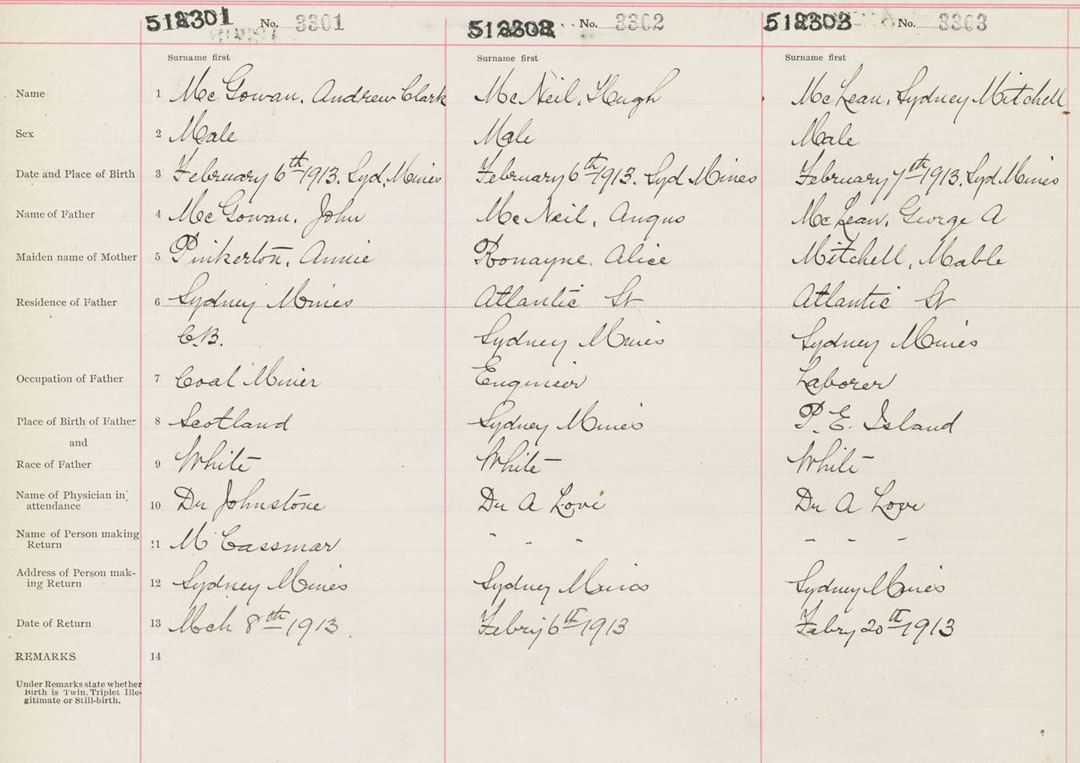 512301 No. 3301 512302 No. 3302 512303 No. 3303
Surname first Surname first Surname first
Name 1 McGowan, Andrew Clark McNeil, Hugh McLean, Sydney Mitchell
Sex 2 Male Male Male
Date and Place of Birth 3 February 6th 1913. Syd. Mines February 6th 1913. Syd Mines February 7th 1913. Syd Mines
Name of Father 4 McGowan, John McNeil, Angus McLean, George A
Maiden name of Mother 5 Pinkerton, Annie Ronayne. Alice Mitchell, Mable
Residence of Father 6 Sydney Mines Atlantic St Atlantic St
C.B. Sydney Mines Sydney Mines
Occupation of Father 7 Coal Miner Engineer Laborer
Place of Birth of Father 8 Scotland Sydney Mines P. E. Island
and
Race of Father 9 White White White
Name of Physician in attendance 10 Dr Johnstone Dr A Love Dr A Love
Name of Person making Return 11 M Cassmar " " " " " "
Address of Person mak-
ing Return 12 Sydney Mines Sydney Mines Sydney Mines
Date of Return 13 Mch 8th 1913 Febry 6th 1913 Febry 20th 1913
REMARKS 14
Under Remarks state whether
Birth is Twin, Triplet Ille-
gitimate or Still-birth.